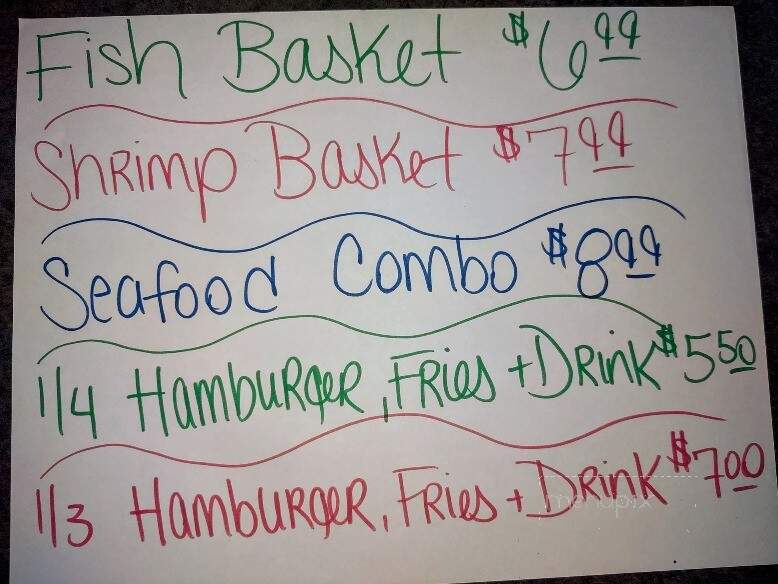 Fish Basket $6.99
Shrimp Basket $7.99
Seafood Combo $8.99
1/4 Hamburger, Fries + Drink $5.50
1/3 Hamburger, Fries + Drink $7.00